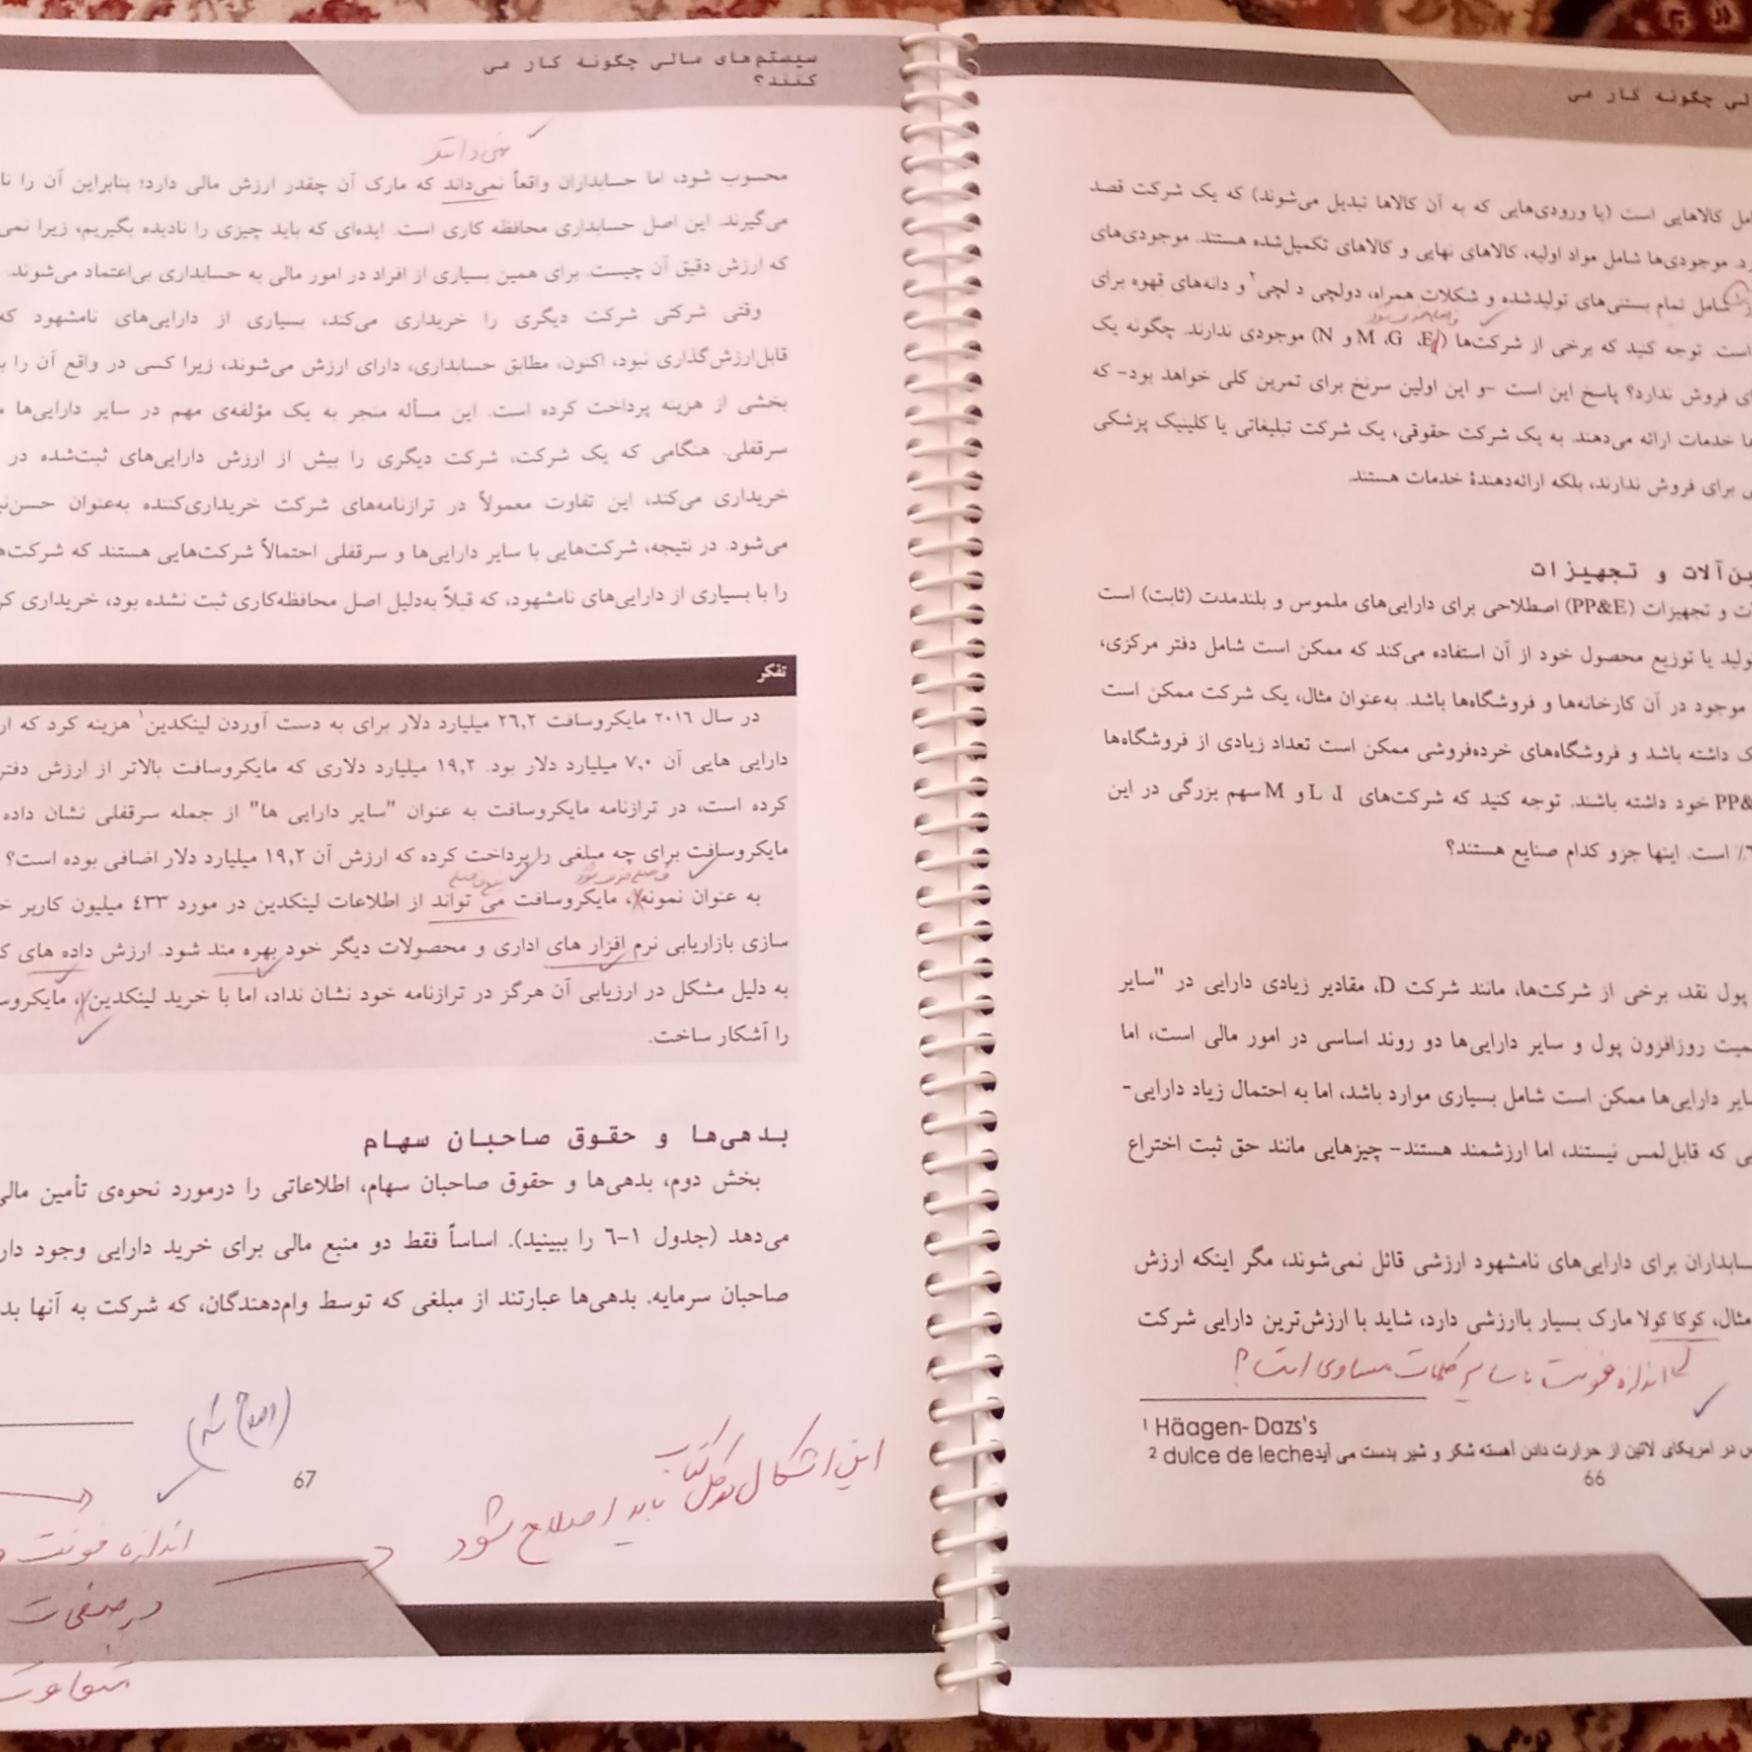 لی چگونه کار می
مل کالاهایی است (یا ورودی‌هایی که به آن کالاها تبدیل می‌شوند) که یک شرکت قصد
رد. موجودی‌ها شامل مواد اولیه، کالاهای نهایی و کالاهای تکمیل‌شده هستند. موجودی‌های
شامل تمام بستنی‌های تولیدشده و شکلات همراه، دولچی د لچی۲ و دانه‌های قهوه برای
فاصله حذف شود
است. توجه کنید که برخی از شرکت‌ها (E، G، M و N) موجودی ندارند. چگونه یک
ای فروش ندارد؟ پاسخ این است -و این اولین سرنخ برای تمرین کلی خواهد بود- که
ها خدمات ارائه می‌دهند. به یک شرکت حقوقی، یک شرکت تبلیغاتی یا کلینیک پزشکی
ی برای فروش ندارند، بلکه ارائه‌دهندهٔ خدمات هستند.
ین‌آلات و تجهیزات
ت و تجهیزات (PP&E) اصطلاحی برای دارایی‌های ملموس و بلندمدت (ثابت) است
تولید یا توزیع محصول خود از آن استفاده می‌کند که ممکن است شامل دفتر مرکزی،
موجود در آن کارخانه‌ها و فروشگاه‌ها باشد. به‌عنوان مثال، یک شرکت ممکن است
ک داشته باشد و فروشگاه‌های خرده‌فروشی ممکن است تعداد زیادی از فروشگاه‌ها
PP& خود داشته باشند. توجه کنید که شرکت‌های I، L و M سهم بزرگی در این
٦٪ است. اینها جزو کدام صنایع هستند؟
پول نقد، برخی از شرکت‌ها، مانند شرکت D، مقادیر زیادی دارایی در "سایر
میت روزافزون پول و سایر دارایی‌ها دو روند اساسی در امور مالی است، اما
سایر دارایی‌ها ممکن است شامل بسیاری موارد باشد، اما به احتمال زیاد دارایی-
ی که قابل‌لمس نیستند، اما ارزشمند هستند- چیزهایی مانند حق ثبت اختراع
سابداران برای دارایی‌های نامشهود ارزشی قائل نمی‌شوند، مگر اینکه ارزش
مثال، کوکا کولا مارک بسیار باارزشی دارد، شاید با ارزش‌ترین دارایی شرکت
اندازه فونت با سایر کلمات مساوی است؟
1 Häagen- Dazs's
2 dulce de leche س در امریکای لاتین از حرارت دادن آهسته شکر و شیر بدست می آید
66
سیستم‌های مالی چگونه کار می
کنند؟
نمی‌دانند
محسوب شود، اما حسابداران واقعاً نمی‌داند که مارک آن چقدر ارزش مالی دارد؛ بنابراین آن را نا
می‌گیرند. این اصل حسابداری محافظه کاری است. ایده‌ای که باید چیزی را نادیده بگیریم، زیرا نمی
که ارزش دقیق آن چیست. برای همین بسیاری از افراد در امور مالی به حسابداری بی‌اعتماد می‌شوند.
وقتی شرکتی شرکت دیگری را خریداری می‌کند، بسیاری از دارایی‌های نامشهود که
قابل‌ارزش‌گذاری نبود، اکنون، مطابق حسابداری، دارای ارزش می‌شوند، زیرا کسی در واقع آن را ب
بخشی از هزینه پرداخت کرده است. این مسأله منجر به یک مؤلفه‌ی مهم در سایر دارایی‌ها م
سرقفلی. هنگامی که یک شرکت، شرکت دیگری را بیش از ارزش دارایی‌های ثبت‌شده در
خریداری می‌کند، این تفاوت معمولاً در ترازنامه‌های شرکت خریداری‌کننده به‌عنوان حسن‌نی
می‌شود. در نتیجه، شرکت‌هایی با سایر دارایی‌ها و سرقفلی احتمالاً شرکت‌هایی هستند که شرکت‌ه
را با بسیاری از دارایی‌های نامشهود، که قبلاً به‌دلیل اصل محافظه‌کاری ثبت نشده بود، خریداری کر
تفکر
در سال ۲۰۱٦ مایکروسافت ۲٦,۲ میلیارد دلار برای به دست آوردن لینکدین۱ هزینه کرد که ار
دارایی هایی آن ۷,۰ میلیارد دلار بود. ۱۹,۲ میلیارد دلاری که مایکروسافت بالاتر از ارزش دفتر
کرده است، در ترازنامه مایکروسافت به عنوان "سایر دارایی ها" از جمله سرقفلی نشان داده
مایکروسافت برای چه مبلغی را پرداخت کرده که ارزش آن ۱۹,۲ میلیارد دلار اضافی بوده است؟
فاصله حذف شود
به عنوان نمونه، مایکروسافت می تواند از اطلاعات لینکدین در مورد ٤۳۳ میلیون کاربر خ
سازی بازاریابی نرم افزار های اداری و محصولات دیگر خود بهره مند شود. ارزش داده های ک
به دلیل مشکل در ارزیابی آن هرگز در ترازنامه خود نشان نداد، اما با خرید لینکدین، مایکروس
را آشکار ساخت.
بدهی‌ها و حقوق صاحبان سهام
بخش دوم، بدهی‌ها و حقوق صاحبان سهام، اطلاعاتی را درمورد نحوه‌ی تأمین مالی
می‌دهد (جدول ۱-٦ را ببینید). اساساً فقط دو منبع مالی برای خرید دارایی وجود دار
صاحبان سرمایه. بدهی‌ها عبارتند از مبلغی که توسط وام‌دهندگان، که شرکت به آنها بد
(اصلاح شد)
این اشکال در کل کتاب باید اصلاح شود
67
اندازه فونت
در صفحات
متفاوت